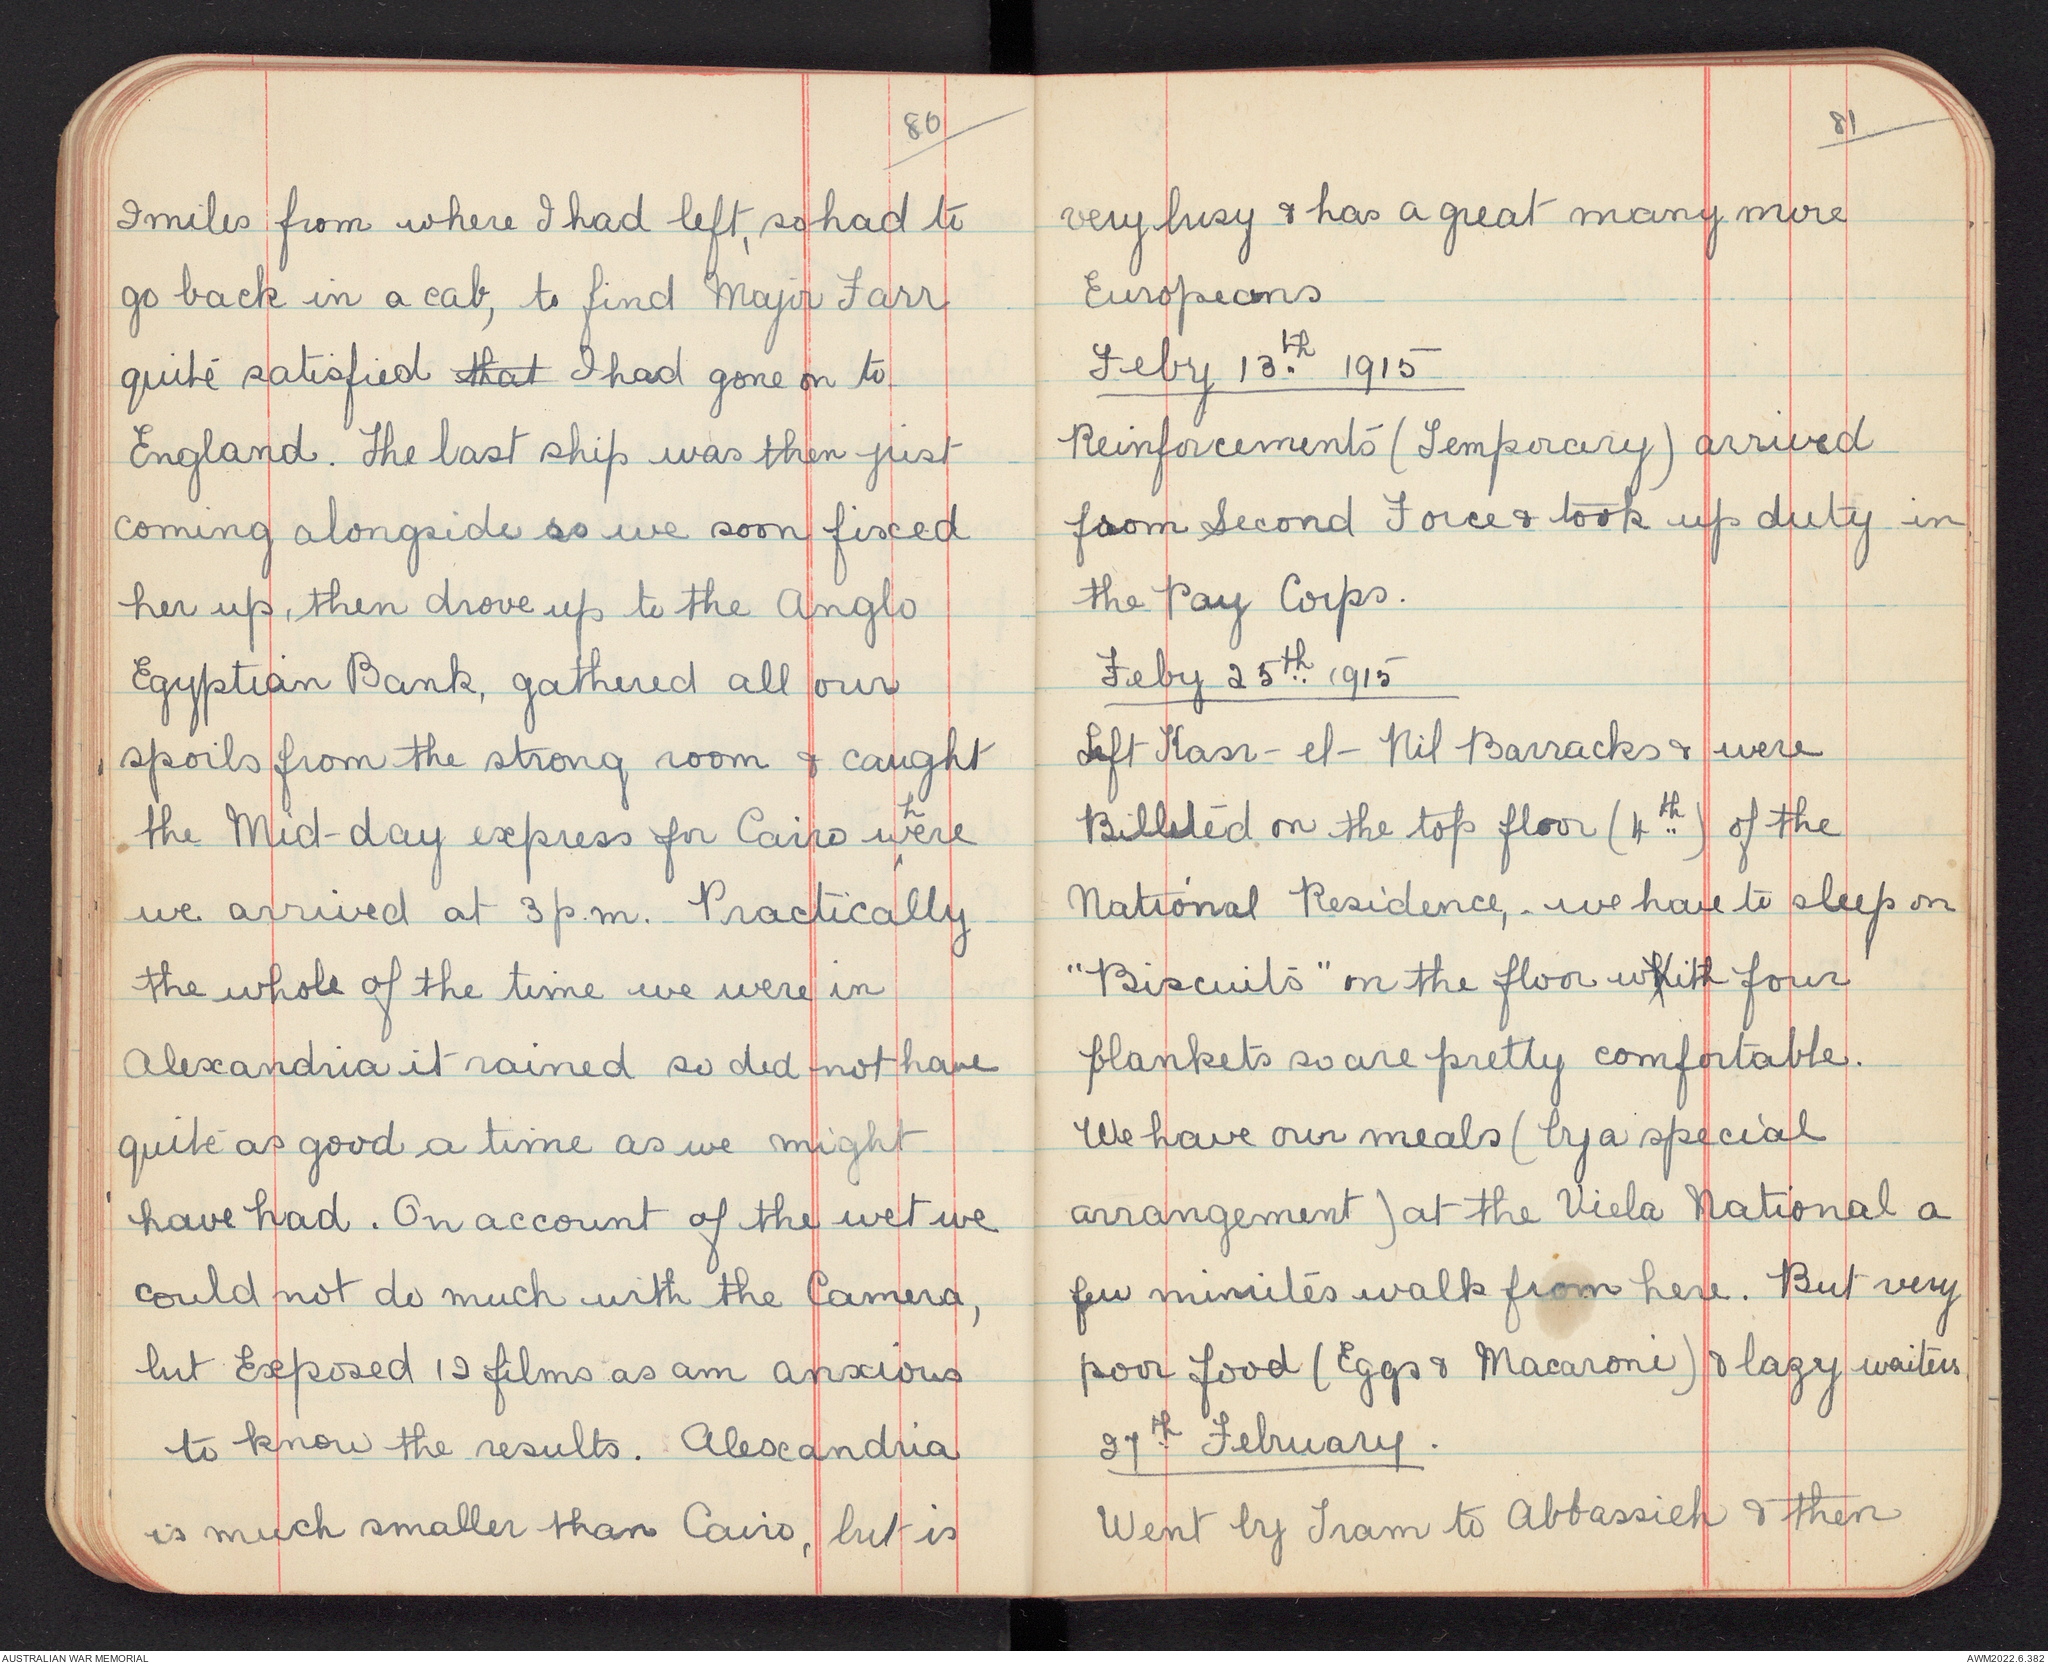 80
2 miles from where I had left, so had to
go back in a cab, to find Major Farr
quite satisfied that I had gone on to
England. The last ship was then just
coming alongside so we soon fixed
her up, then drove up to the Anglo
Egyptian Bank, gathered all our
spoils from the strong room & caught
the Mid-day express for Cairo where
we arrived at 3 p.m. Practically
the whole of the time we were in
Alexandria it rained so did not have
quite as good a time as we might
have had. On account of the wet we
could not do much with the Camera,
but Exposed 12 films as am anxious
to know the results. Alexandria
is much smaller than Cairo, but is
81
very busy & has a great many more
Europeans
Feby 13th 1915
Reinforcements (Temporary) arrived
from Second Force & took up duty in
the Pay Corps.
Feby 25th 1915
Left Kasr-el-Nil Barracks & were
Billeted on the top floor (4th) of the
National Residence, - we have to sleep on
"Biscuits" on the floor with four
blankets so are pretty comfortable.
We have our meals (by a special
arrangement) at the Viela National a
few minutes walk from here. But very
poor food (Eggs & Macaroni) & lazy waiters
27th February.
Went by Tram to Abbassieh & then
AUSTRALIAN WAR MEMORIAL
AWM2022.6.382